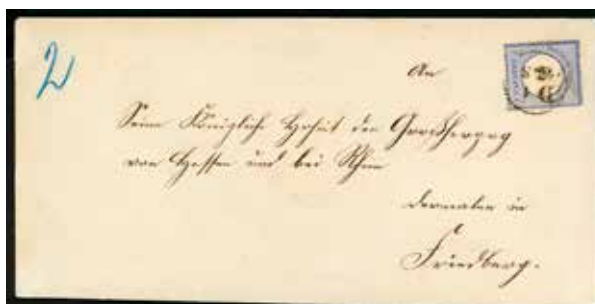 2
An
Seine Königliche Hoheit den Großherzog
von Hessen und bei Rhein
dermalen in
Friedberg.